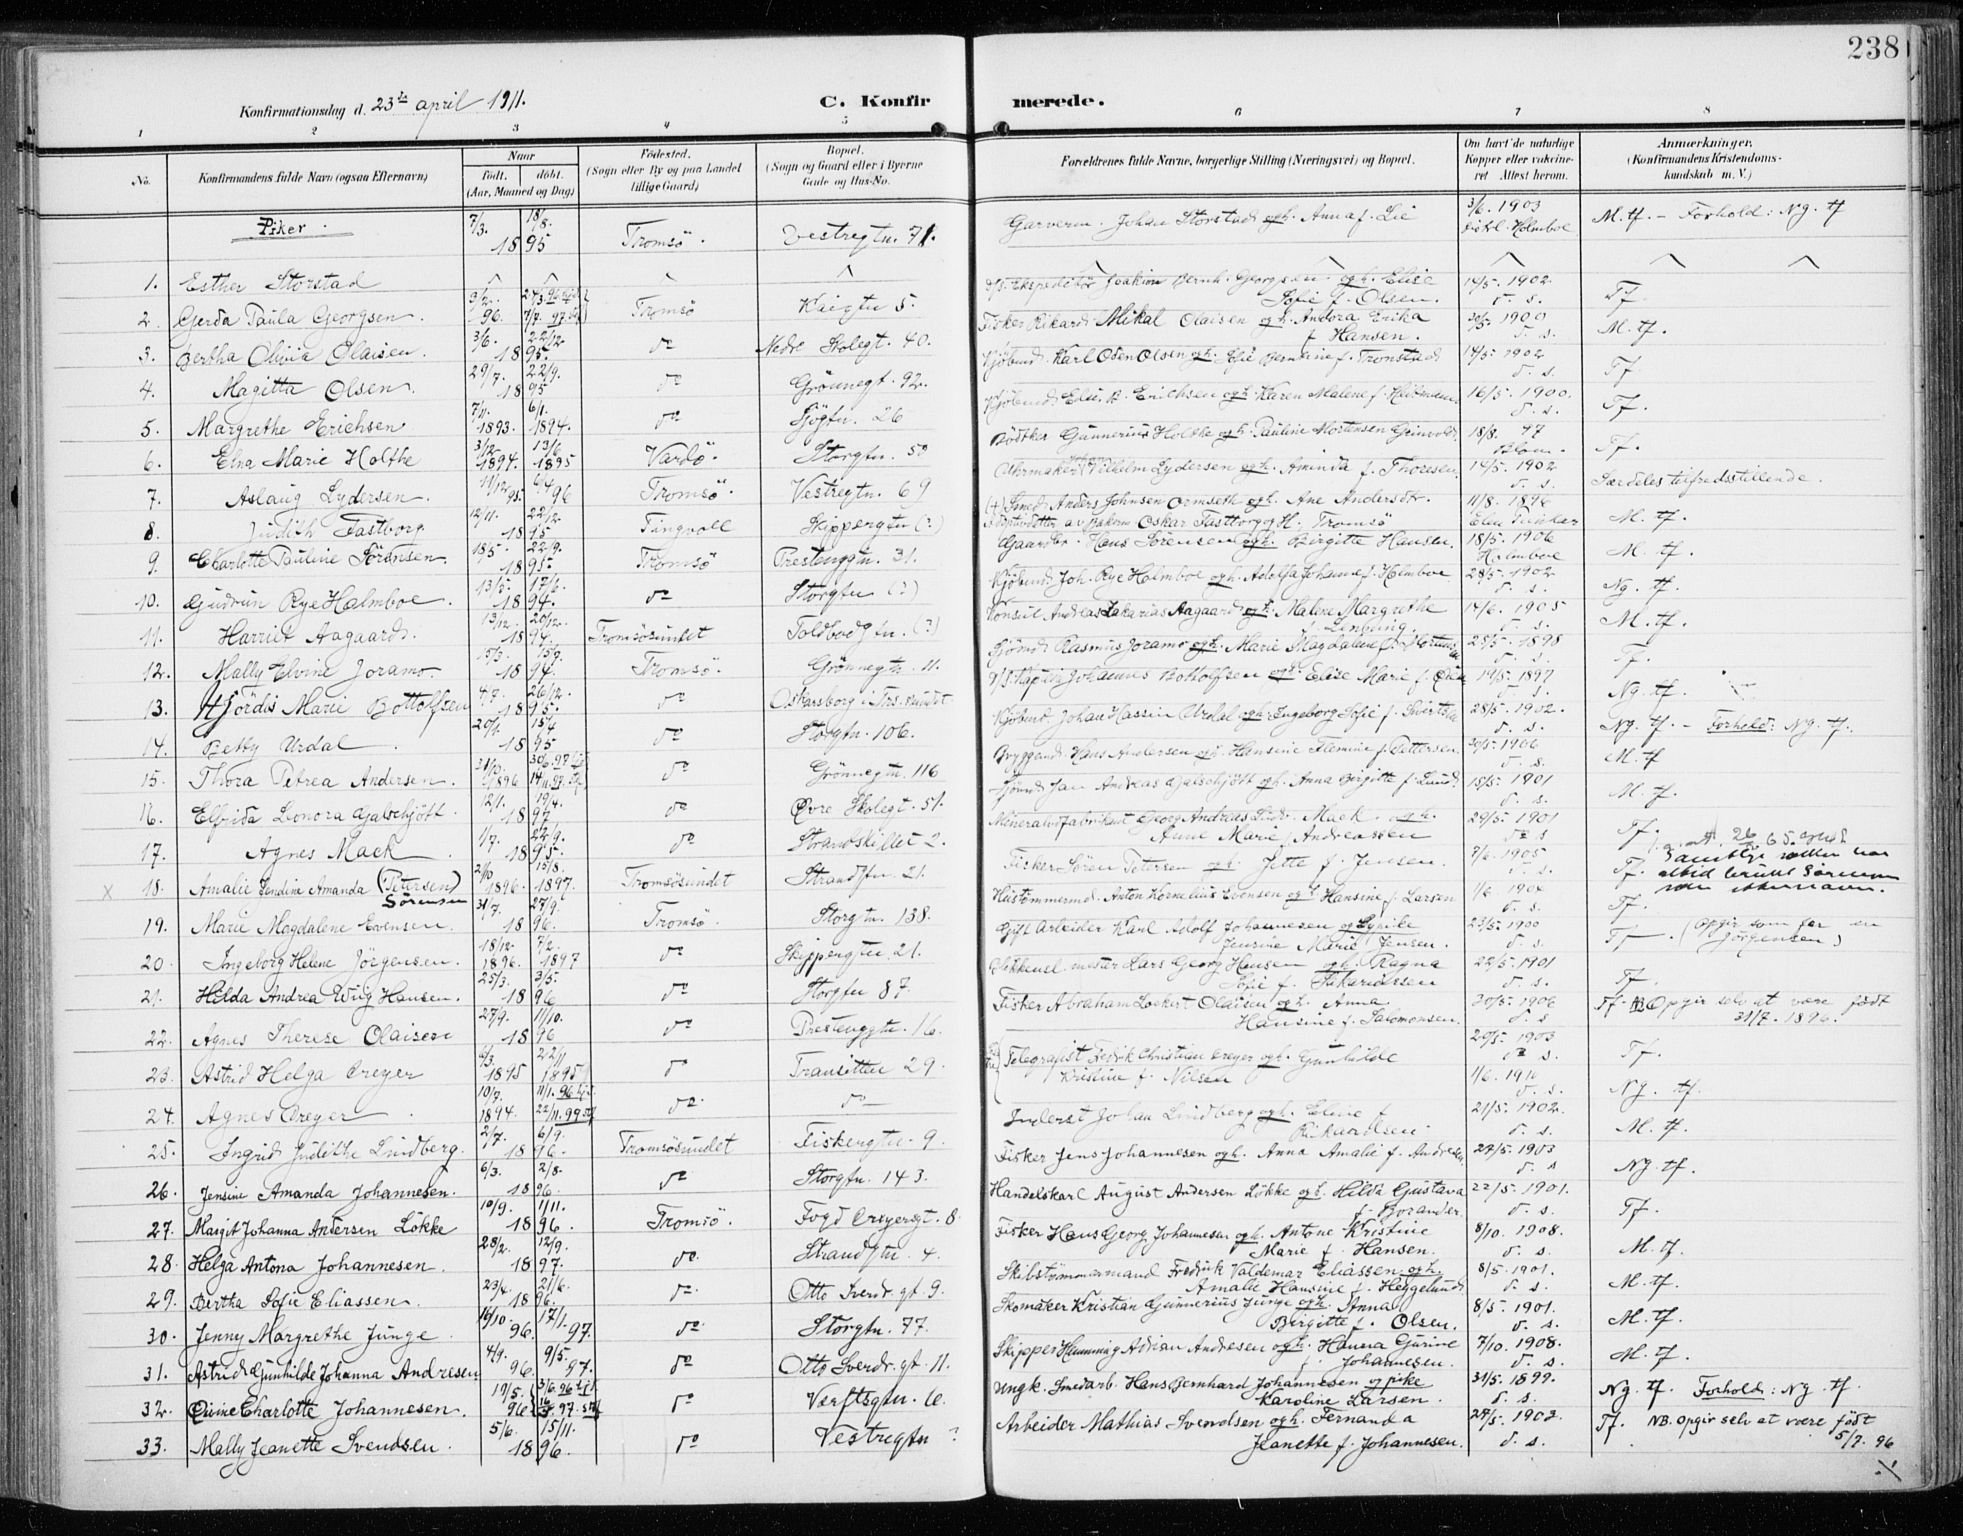 238
Konfirmationsdag d. 23de april 1911.
C. Konfirmerede.
1 2 3 4 5 6 7 8
No. Konfirmandens fulde Navn (ogsaa Efternavn) Naar født. døbt. (Aar, Maaned og Dag) Fødested. (Sogn eller By og paa Landet tillige Gaard) Bopæl. (Sogn og Gaard eller i Byerne Gade og Hus-No. Forældrenes fulde Navne, borgerlige Stilling (Næringsvei) og Bopæl. Om havt de naturlige Kopper eller vaccineret Attest herom. Anmærkninger. (Konfirmandens Kristendomskundskab m. V.)
Piker. 7/3. 18/8. 1895 Tromsö. Vestregtn. 71. Garveren Johan Storstad og h. Anna f. Lie 3/6. 1903 Holmboe M. tf. – Forhold: Ng. tf
1. Esther Storstad
2. Gerda Paula Georgsen. 9/2. 96. Tromsö Kaigtn 5. Ekspeditör Joakim Bernh. Georgsen og h. Elise Sofie f. Olsen. 14/5. 1902. d. s. Tf.
3. Bertha Olivia Olaisen. 3/6. 22/12 1895. do Nedr. Skolegt. 40. Fisker Rikard Mikal Olaisen og h. Andora Erika f. Hansen. 1900 d. s. M. tf.
4. Magitta Olsen. 29/7. 22/9. 1895 do Grönnegt. 92. Kjöbmd. Karl Osen Olsen og h. Sofie Berntine f. Tronstad 14/5. 1902 d. s. Tf.
5. Margrethe Erichsen 7/11. 1893. 6/1. 1894. do Sjögtn. 26 Kjöbmd. B. Erichsen og h. Karen Malene f. 16/5. 1900. d. s. Tf.
6. Elna Marie Holthe 3/12 1894. 13/6 1895 Vardö. Storgtn. 50 Bödtker Gunnerius Holthe og h. Pauline Mortensen 18/8. Blom. Tf.
7. Aslaug Lydersen. 11/12 95. 96 Tromsö. Vestregtn. 69 Uhrmaker Johan Vilhelm Lydersen og h. Aminda f. Thoresen 14/5. 1902 d. s. Særdeles tilfredsstillende.
8. Judith Fastborg 12/11. 22/12. 1895 Tingvoll Skippergtn (?) Smed Anders Johnsen Ormseth og h. Ane Andersdtr. Adoptivdatter av Bakerm Oskar Fasttorg og H. Tromsö 11/8. 1896 M. tf.
9. Charlotte Pauline Sörensen. 18/5. 22/9. 1895. Tromsö Prestenggtn. 31. Gaardbr. Hans Sörensen og h. Birgitte Hansen. 18/5. 1906 Holmboe M. tf.
10. Gudrun Rye Holmboe. 13/5. 17/6. 1894. do Storgtn (?) Kjöbmd. Joh. Rye Holmboe og h. Adolfa Johanne f. Holmboe 28/5. 1902 d. s. Ng. tf.
11. Harriet Aagaard. 13/12. 20/12. 1894. Tromsösundet Toldbodgtn. (?) Konsul Andreas Zakarias Aagaard og h. Malene Margrethe 14/6. 1905 d. s. M. tf.
12. Mally Elvine Joramo. 1894. Tromsö. Grönnegtn. 11. Rasmus Joramo og h. Marie Magdalene f. 28/5. 1898 d. s. Tf.
13. Hjördis Marie Bottolfsen 4/7. 26/12. 1895. do Oskarsborg i Ths. sundet Johannes Bottolfsen og h. Elise Marie f. 14/5. 1897 d. s. Ng. tf.
14. Betty Urdal. 20/1. 15/4 1895 do Storgtn. 106. Kjöbmd. Johan Hassin Urdal og h. Ingeborg Sofie f. 28/5. 1902. d. s. Ng. tf. – Forhold: Ng. tf.
15. Thora Petrea Andersen. 1896 do Grönnegtn. 116 Bryggemd. Hans Andersen og h. Hansine Flemine f. Pettersen. 20/5. 1906 d. s. M. tf
16. Elfrida Leonora Gjalschjött. 12/1. 19/4. 1897 do Øvre Skolegt. 51. Jan Andreas Gjalschjött og h. Anna Birgitte f. Lund. 18/5. 1901 d. s. M. tf.
17. Agnes Mack. 1/7. 22/9. 1895. do Strandskillet 2. Mineralvdfabrikant Georg Andreas Mack og h. Anne Marie f. Andreassen 29/5. 1901 do s Tf.
x 18. Amalie Jendine Amanda (Petersen) Sörensen 1896. 15/8. 1897. Tromsösundet Strandgtn. 21. Fisker Sören Petersen og h. Jette f. Jensen. 7/6. 1905 d. s. Tf. altid brukt Sörensen som efternavn.
19. Marie Magdalene Evensen. 31/7. 27/9. 1896. Tromsö. Storgtn. 138. Hustömmermd. Anton Kornelius Evensen og h. Hansine f. Larsen 1/6. 1904 d. s. Tf.
20. Ingeborg Helene Jörgensen. 18/12. 1896. 7/2. 1897 do Skippergtn. 21. Gift Arbeider Karl Adolf Johannesen og pike Jensine Marie Jensen. 23/5. 1900 d. s. Tf. (Opgir som far en Jörgensen)
21. Hilda Andrea Wiig Hansen. 25/3. 3/5. 1896 do Storgtn 87. Lars Georg Hansen og h. Ragna Sofie f. Sakariassen 22/5. 1901 d. s. Tf.
22. Agnes Therese Olaisen 27/9. 11/10. 1896 do Prestenggtn. 16. Fisker Abraham Lockert Olaisen og h. Anna Hansine f. Salomonsen. 20/5. 1906 d. s Tf. NB Opgir selv at være födt 31/7. 1896.
23. Astrid Helga Creyer 6/3. 1895 22/11 1895 do Transitttn 29. Telegrafist Fedrik Christian Creyer og h. Gunhilde Kristine f. Nilsen 20/5. 1903 do s. Tf.
24. Agnes Creyer. 10/7. 1894. 11/1. 96 22/11. 99 do do 1/6. 1910 d. s. Ng. tf.
25. Ingrid Judithe Lindberg. 2/7. 6/9. 1896. Tromsösundet Fiskergtn. 9. Inderst Johan Lindberg og h. Eline f. Rikardsen. 21/5. 1902. d. s. M. tf.
26. Jensine Amanda Johannesen. 6/3. 2/8. 1896. do Storgtn. 143. Fisker Jens Johannesen og h. Anna Amalie f. Andresen 1903 d. s Ng. tf.
27. Margit Johanna Andersen Lökke 10/9. 1/11. 1896. Tromsö. Fogd Creyersgt. 8. Handelskarl August Andersen Lökke og h. Hilda Gustava f. Borander. 22/5. 1901. d. s. Tf.
28. Helga Antona Johannesen. 28/2. 12/9. 1897. do. Strandgtn. 4. Fisker Hans Georg Johannesen og h. Antone Kristine Marie f. Hansen. 8/10. 1908. d. s. M. tf.
29. Bertha Sofie Eliassen. 23/4. 21/6. 1896. do. Otto Sverdr. gt. 9. Skibstömmermand Fredrik Valdemar Eliassen og h. Amalie Hansine f. Heggelund. 8/5. 1901. d. s. M. tf.
30. Jenny Margrethe Junge. 16/10. 96. 17/1. 97. do. Storgtn. 77. Skomaker Kristian Gunnerius Junge og h. Anna Birgitte f. Olsen. 8/5. 1901. d. s. M. tf.
31. Astrid Gunhilde Johanna Andresen 4/9. 96. 9/5 97. do Otto Sverdr. gt. 11. Skipper Hemming Adrian Andresen og h. Hanna Gurine f. Johannesen. 7/10. 1908. d. s. M. tf.
32. Quine Charlotte Johannesen. 19/5. 96 3/6. 96 97. do Værftsgtn. 10. Ungk. Smedarb. Hans Bernhard Johannesen og pike Karoline Larsen. 31/5. 1899. d. s. Ng. tf. Forhold: Ng. tf.
33. Mally Jeanette Svendsen. 5/6. 15/11. 1896. do Vestregtn ? Arbeider Mathias Svendsen og h. Fernanda Jeanette f. Johannesen. 1903. d. s. Tf. NB. Opgir selv at være födt 5/7. 96